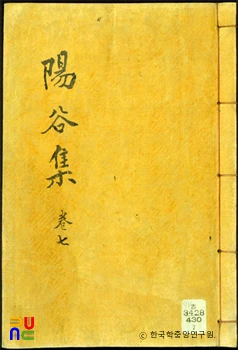 陽谷集
卷七
古
3428
430
7
UNC
ⓒ 한국학중앙연구원